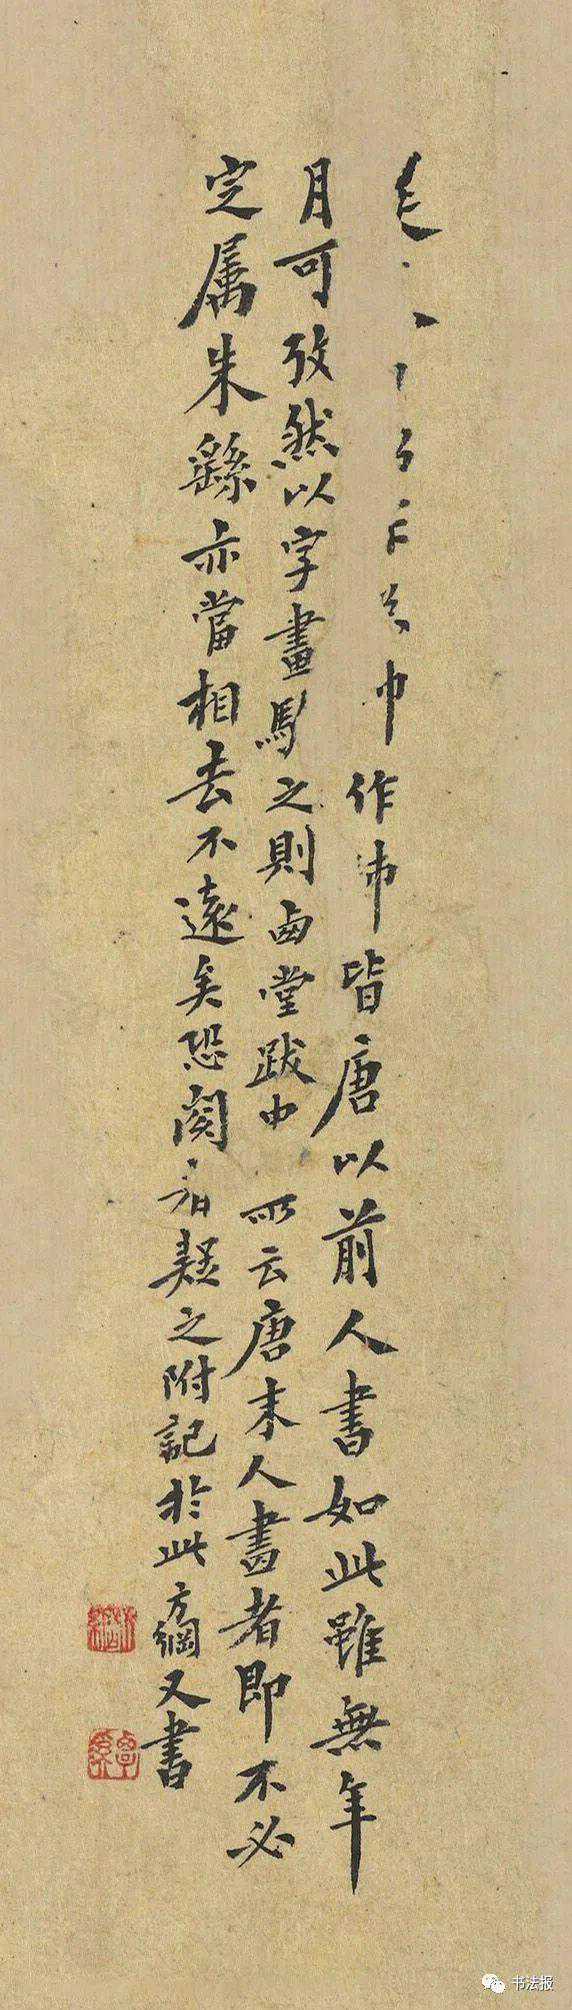 巾作帀皆唐以前人書如此雖無年
月可攷然以字畫馬之則卤堂跋中所云唐末人書者即不必
定属朱繇亦當相去不遠矣恐閱者疑之附記於此方綱又書
书法报